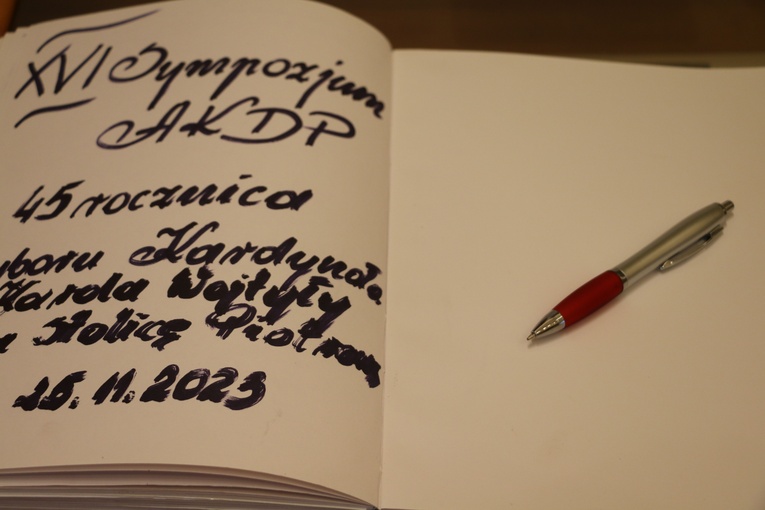 XVI Sympozjum
AKDP
45 rocznica
yboru Kardynała
Karola Wojtyły
Stolicę Piotrową
25.11.2023